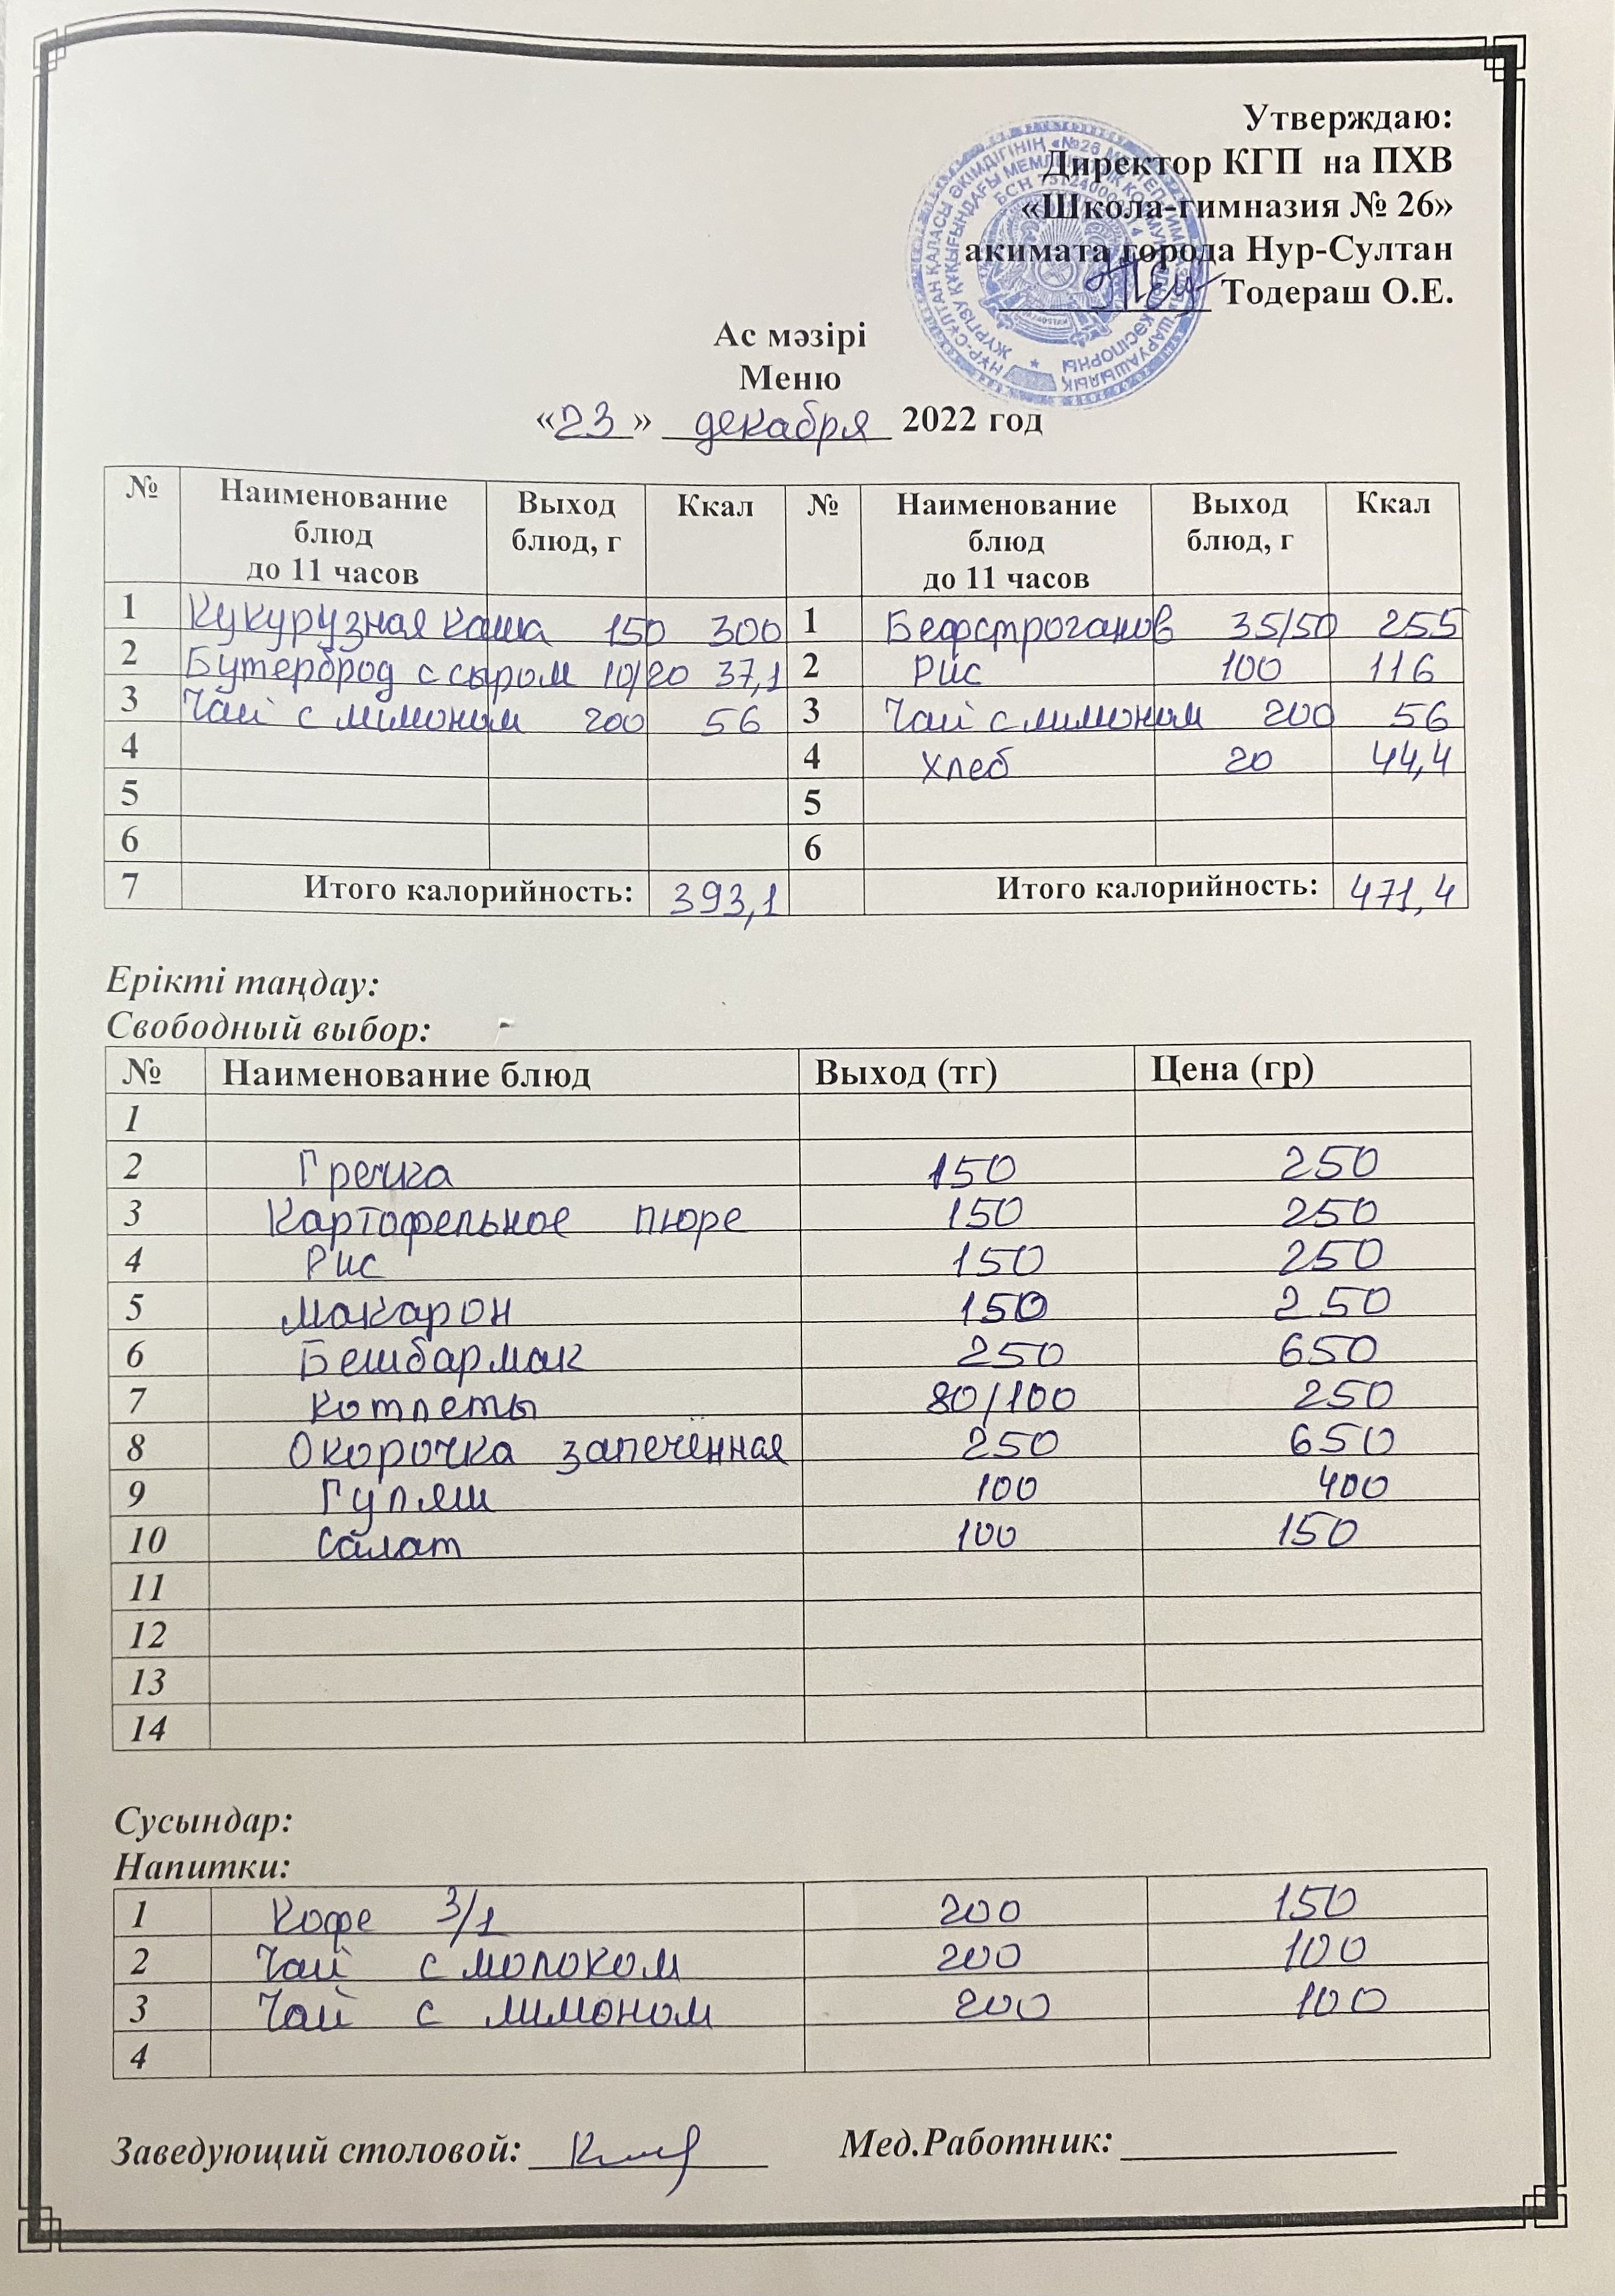 Утверждаю:
Директор КГП на ПХВ
«Школа-гимназия № 26»
акимата города Нур-Султан
Тодераш О.Е.
Ас мәзірі
Меню
«23» декабря 2022 год
№ Наименование блюд до 11 часов Выход блюд, г Ккал № Наименование блюд до 11 часов Выход блюд, г Ккал
1 Кукурузная каша 150 300 1 Бефстроганов 35/50 255
2 Бутерброд с сыром 10/20 37,1 2 Рис 100 116
3 Чай с лимоном 200 56 3 Чай с лимоном 200 56
4 4 Хлеб 20 44,4
5 5
6 6
7 Итого калорийность: 393,1 Итого калорийность: 471,4
Ерікті таңдау:
Свободный выбор:
№ Наименование блюд Выход (тг) Цена (гр)
1
2 Гречка 150 250
3 Картофельное пюре 150 250
4 Рис 150 250
5 Макарон 150 250
6 Бешбармак 250 650
7 Котлеты 80/100 250
8 Окорочка запечённая 250 650
9 Гуляш 100 400
10 Салат 100 150
11
12
13
14
Сусындар:
Напитки:
1 Кофе 3/1 200 150
2 Чай с молоком 200 100
3 Чай с лимоном 200 100
4
Заведующий столовой: Мед.Работник: